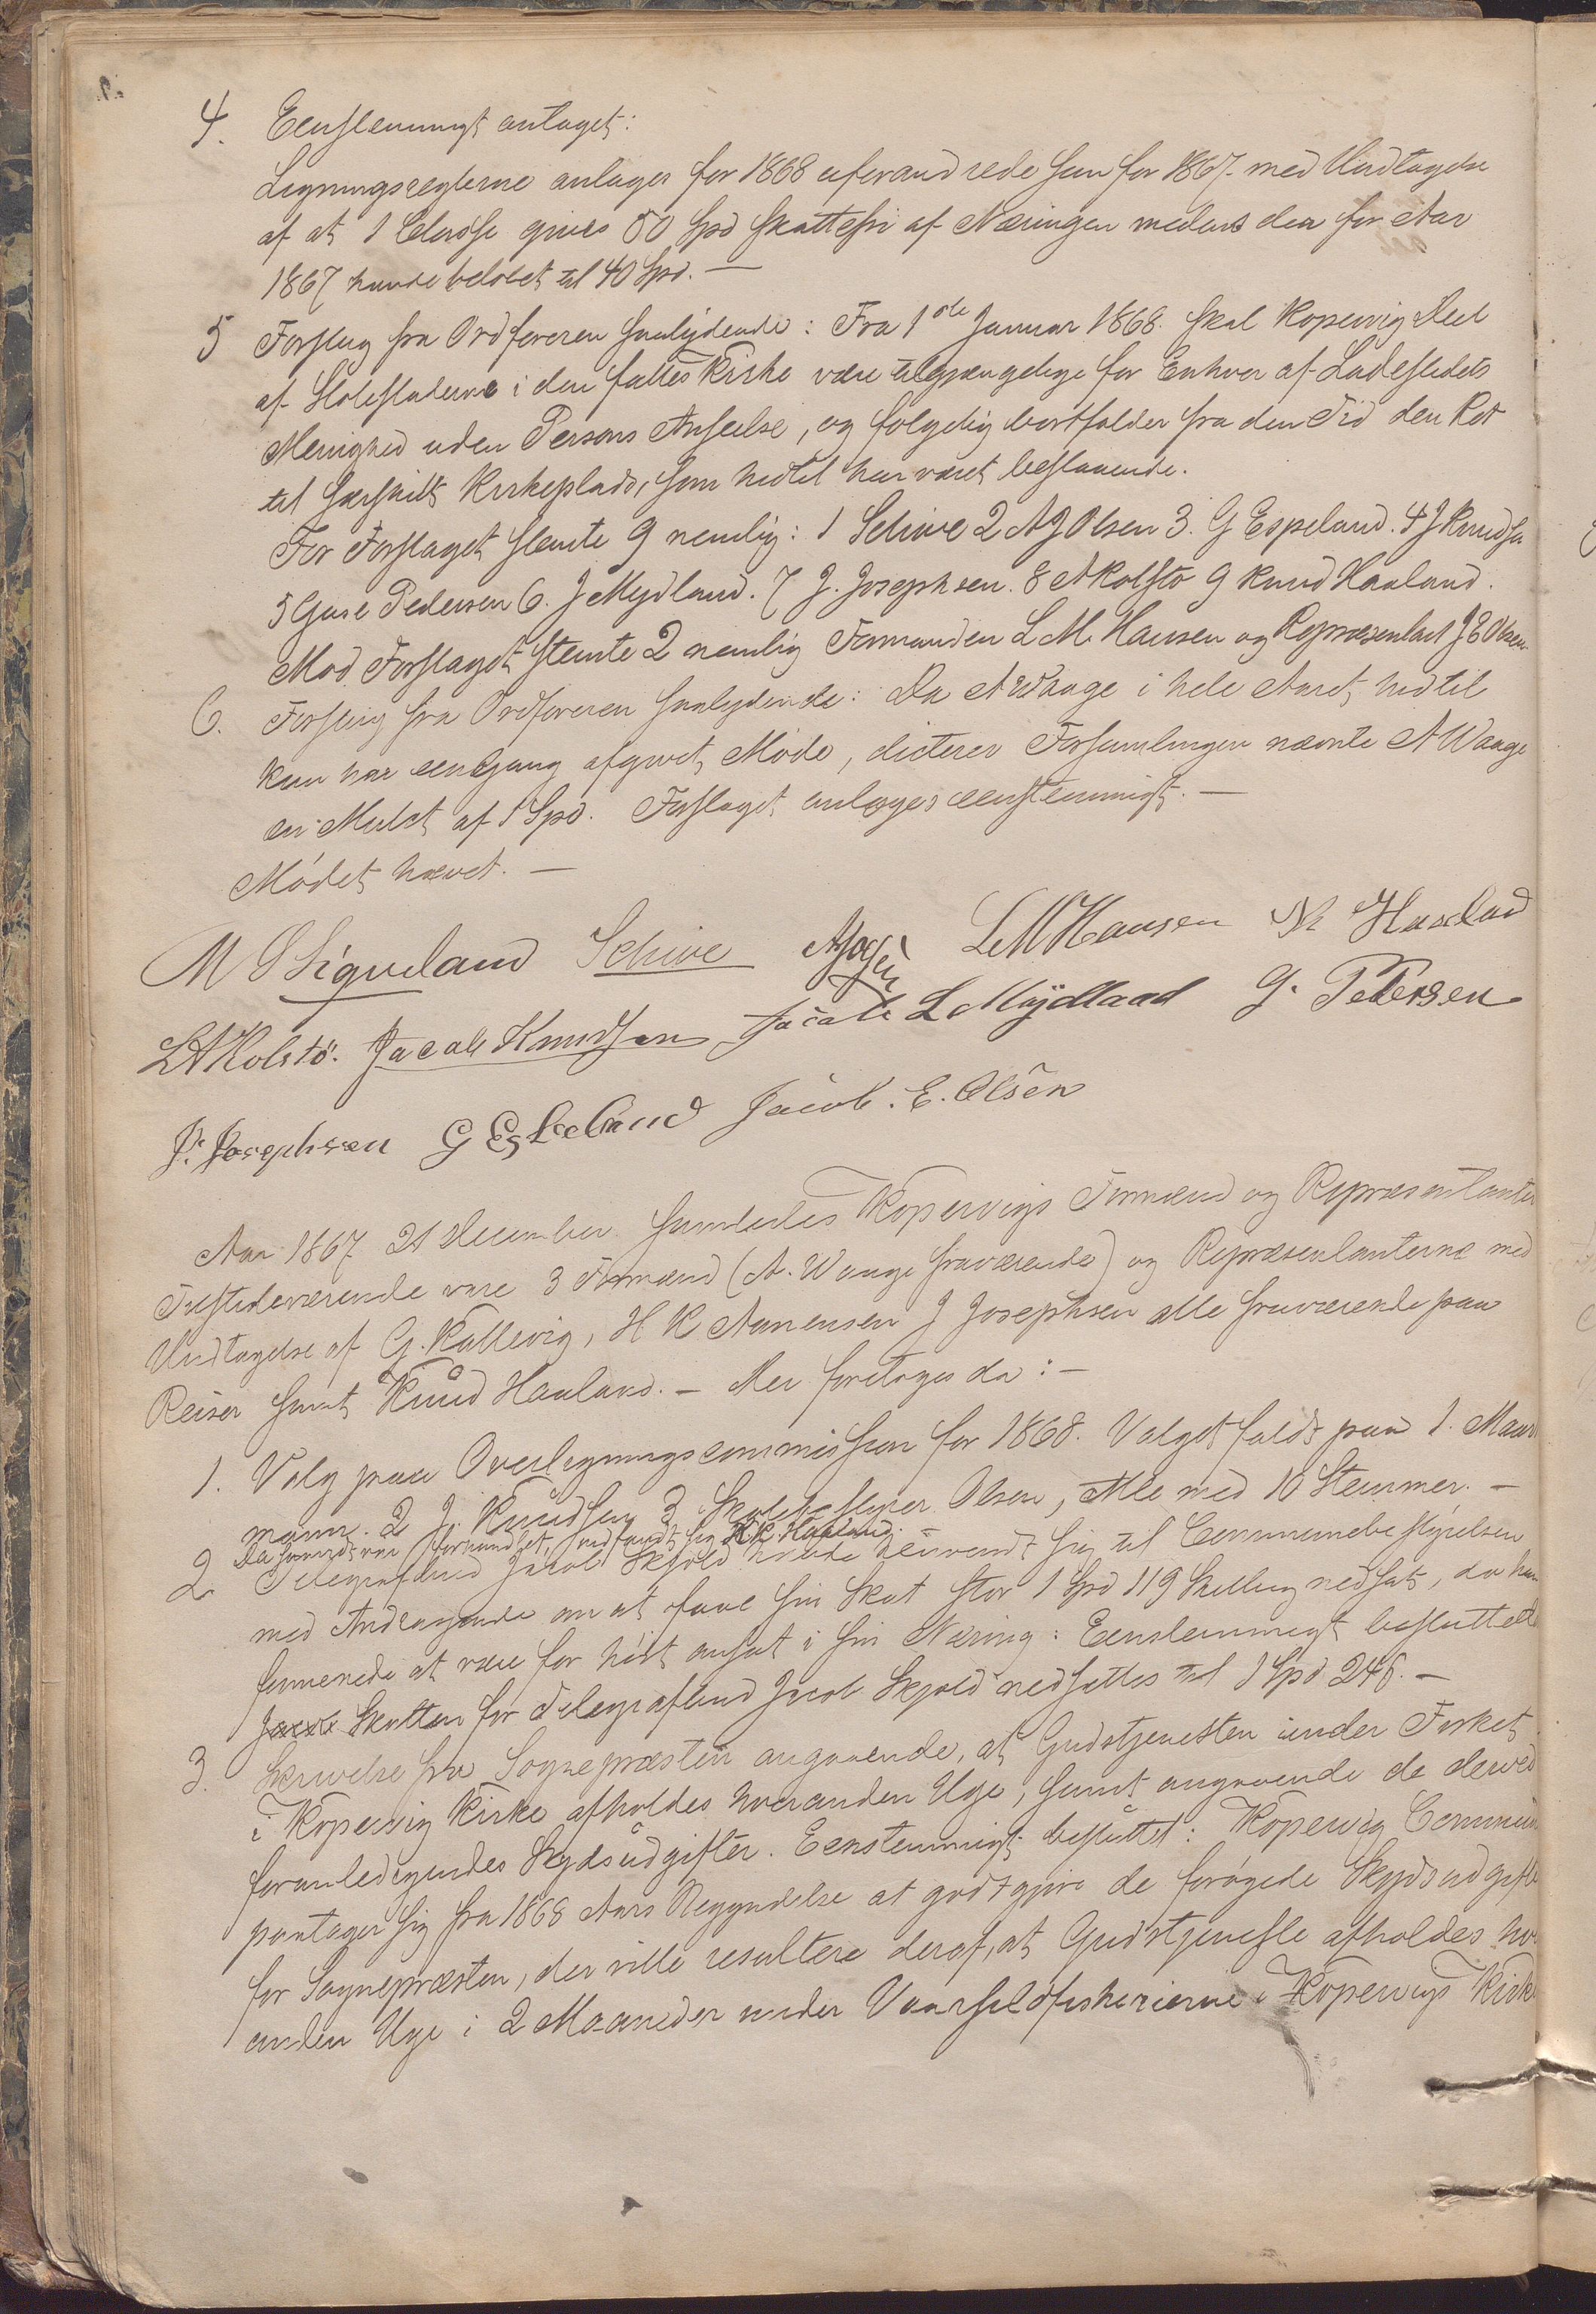 4. Eenstemmigt antaget:
Ligningsreglerne antages for 1868 uforandrede som for 1867 med Undtagelse
af at 1 Classe gives 50 Spd skattefri af Næringen medens den for Aar
1867 havde beløbet til 40 Spd. —
5 Forslag fra Ordføreren saalydende: Fra 1ste Januar 1868 skal Kopervig Deel
af Stolestaderne i den fælles Kirke være tilgjængelige for Enhver af Ladestedets
Menighed uden Persons Anseelse, og følgelig bortfalder fra den Tid den Ret
til særskilt Kirkeplads, som hidtil har været bestaaende.
For Forslaget stemte 9 nemlig: 1 Schive 2 A J Olsen 3. G Espeland. 4 J Knudsen
5 Gase Pedersen 6. J Mydland. 7 J. Josephsen. 8 A Kolstø 9 Knud Haaland.
Mod Forslaget stemte 2 nemlig Formanden L M. Hansen og Repræsentant J E Olsen.
6. Forslag fra Ordføreren saalydende: Da A Waage i hele Aaret hidtil
kun har eengang afgivet Møde, dicterer Forsamlingen nævnte A Waage
en Mulct af 1 Spd. Forslaget antages eenstemmigt. —
Mødet hævet. —
M S Liqueland Schive A J Olsen L M Hansen K Haaland
L A Kolstø. Jacob Knudsen Jacob L Mÿdland G. Petersen
J. Josephsen G Espeland Jacob. E. Olsen
Aar 1867 21 December samledes Kopervigs Formænd og Repræsentanter
Tilstedeværende vare 3 Formænd (A. Waage fraværende) og Repræsentanterne med
Undtagelse af G. Kallevig, H K Aanensen J Josephsen alle fraværende paa
Reiser samt Knud Haaland. — Der foretoges da: —
1. Valg paa Overligningscommission for 1868. Valget faldt paa 1. Maar
mann. 2 J. Knudsen 3 Skolebestyrer Olsen, Alle med 10 Stemmer. —
Da var forhandlet, indfandt sig K. Haaland.
2 Telegrafbud Jacob Skjold havde henvendt sig til Communebestyrelsen
med Andragende om at faae sin Skat stor 1 Spd 119 Skilling nedsat, da han
formenede at være for høit ansat i sin Næring: Eenstemmigt besluttedes
Jacob Skatten for Telegrafbud Jacob Skjold nedsættes til 1 Spd 24 ß. —
3. Skrivelse fra Sognepræsten angaaende, at Gudstjenesten under Fisket
i Kopervig Kirke afholdes hveranden Uge, samt angaaende de derved
foranledigendes Skydsudgifter. Eenstemmigt besluttet: Kopervig Commune
paatager sig fra 1868 Aars Begyndelse at godtgjøre de forøgede Skydsudgifter
for Sognepræsten, der ville resultere deraf, at Gudstjeneste afholdes hver
anden Uge i 2 Maaneder under Vaarsildfiskerierne i Kopervigs Kirke